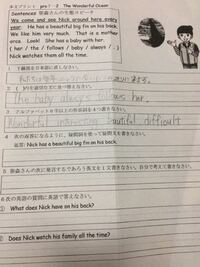 pro 7 - 2 The Wonderful Ocean
Sentences 笹森さんの生態スピーチ
We come and see Nick around here every
year. He has a beautiful big fin on his back.
We like him very much. That is a mother
orca. Look! She has a baby with her.
( her / the / follows / baby / always / . )
Nick watches them all the time.
1 下線部を日本語に直しなさい。
2 ( )内を適切な文に並べ替えなさい。
The baby always follows her.
Wonderful interesting beautiful difficult
4 次の返答になるように、疑問詞を使って疑問文を書きなさい。
返答: Nick has a beautiful big fin on his back.
5 笹森さんの次に発言するであろう英文を1文書きなさい。自分で考えて書きなさい。
6 次の英語の質問に英語で答えなさい。
① What does Nick have on his back?
② Does Nick watch his family all the time?